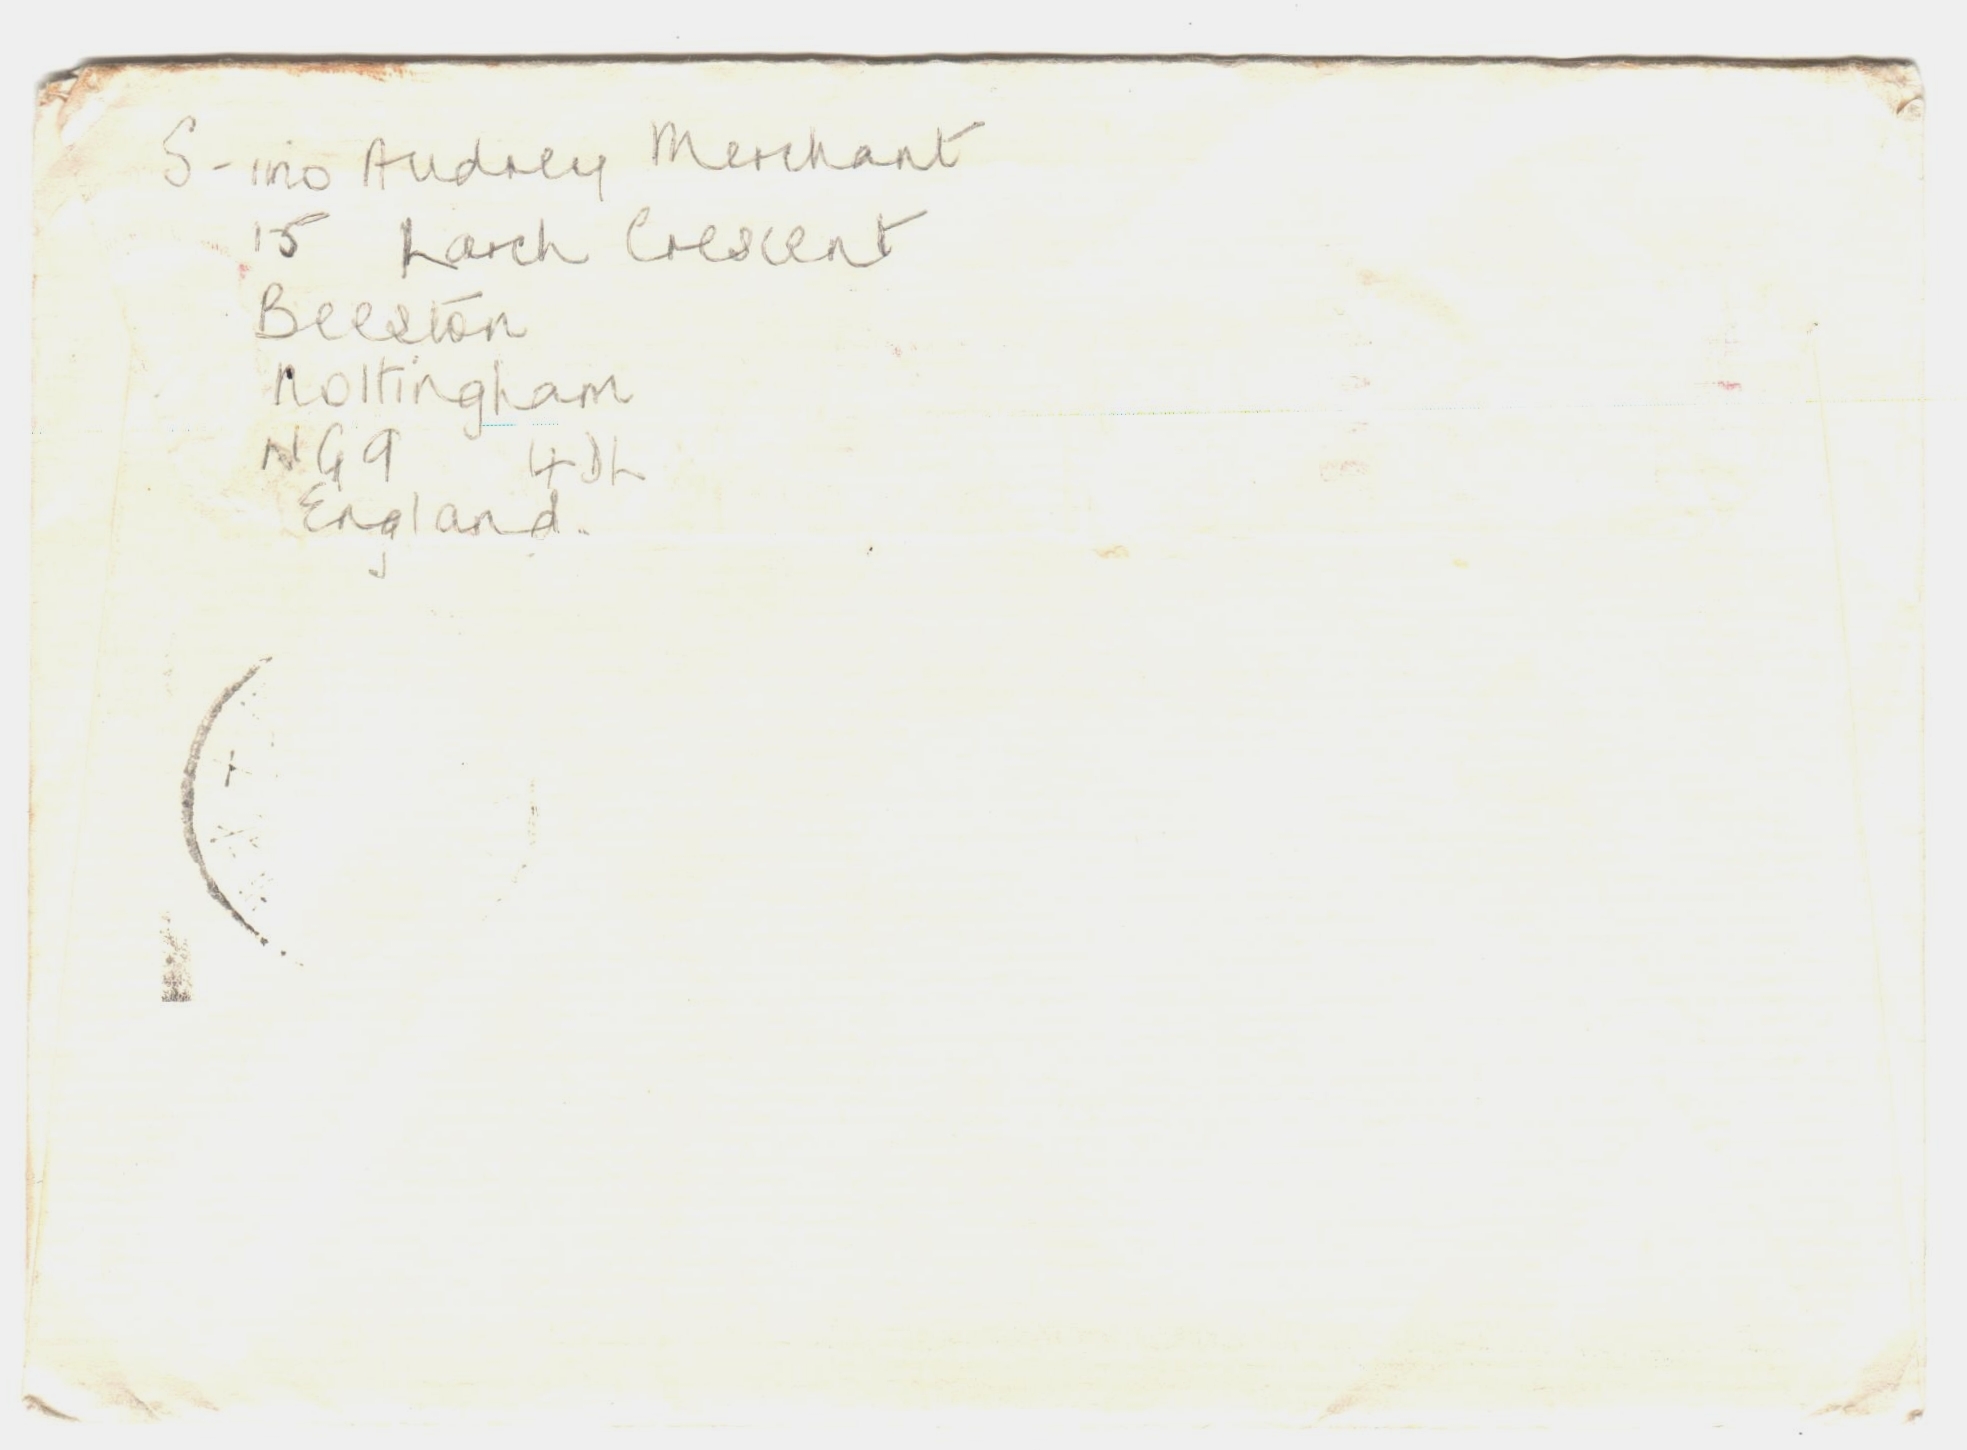 S-ino Audrey Merchant
15 Larch Crescent
Beeston
Nottingham
NG9 4DL
England.